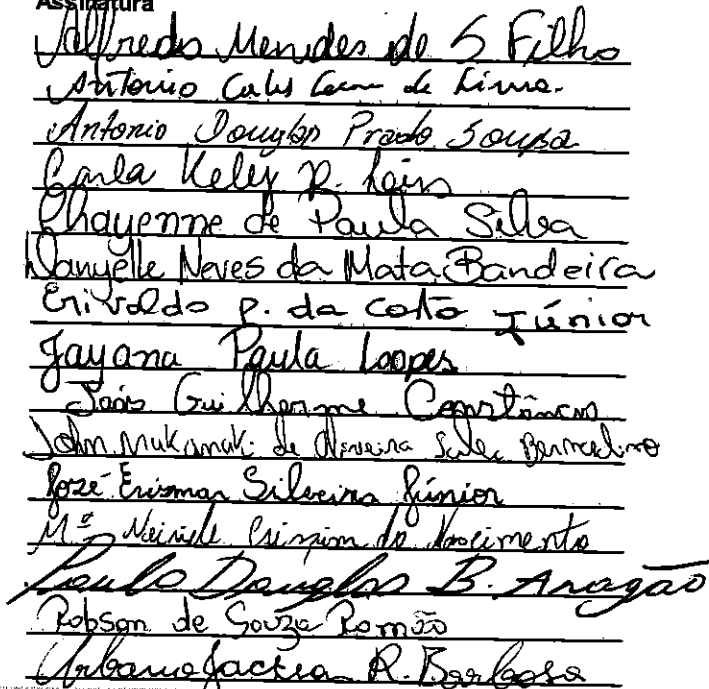 Assinatura
Alfredo Mendes de S Filho
Antonio de Lima
Antonio Douglas Prado Sousa
Carla Kely P.
Chayenne de Paula Silva
Danyelle Neves da Mata Bandeira
Erivaldo P. da Costa Júnior
Jayana Paula Loopes
João Guilherme Constâncio
John de Oliveira Sales Bernardino
José Erismar Silveira Júnior
Mª Neirile do Nascimento
Paulo Douglas B. Aragão
Robson de Souza Romão
Urbano R. Barbosa